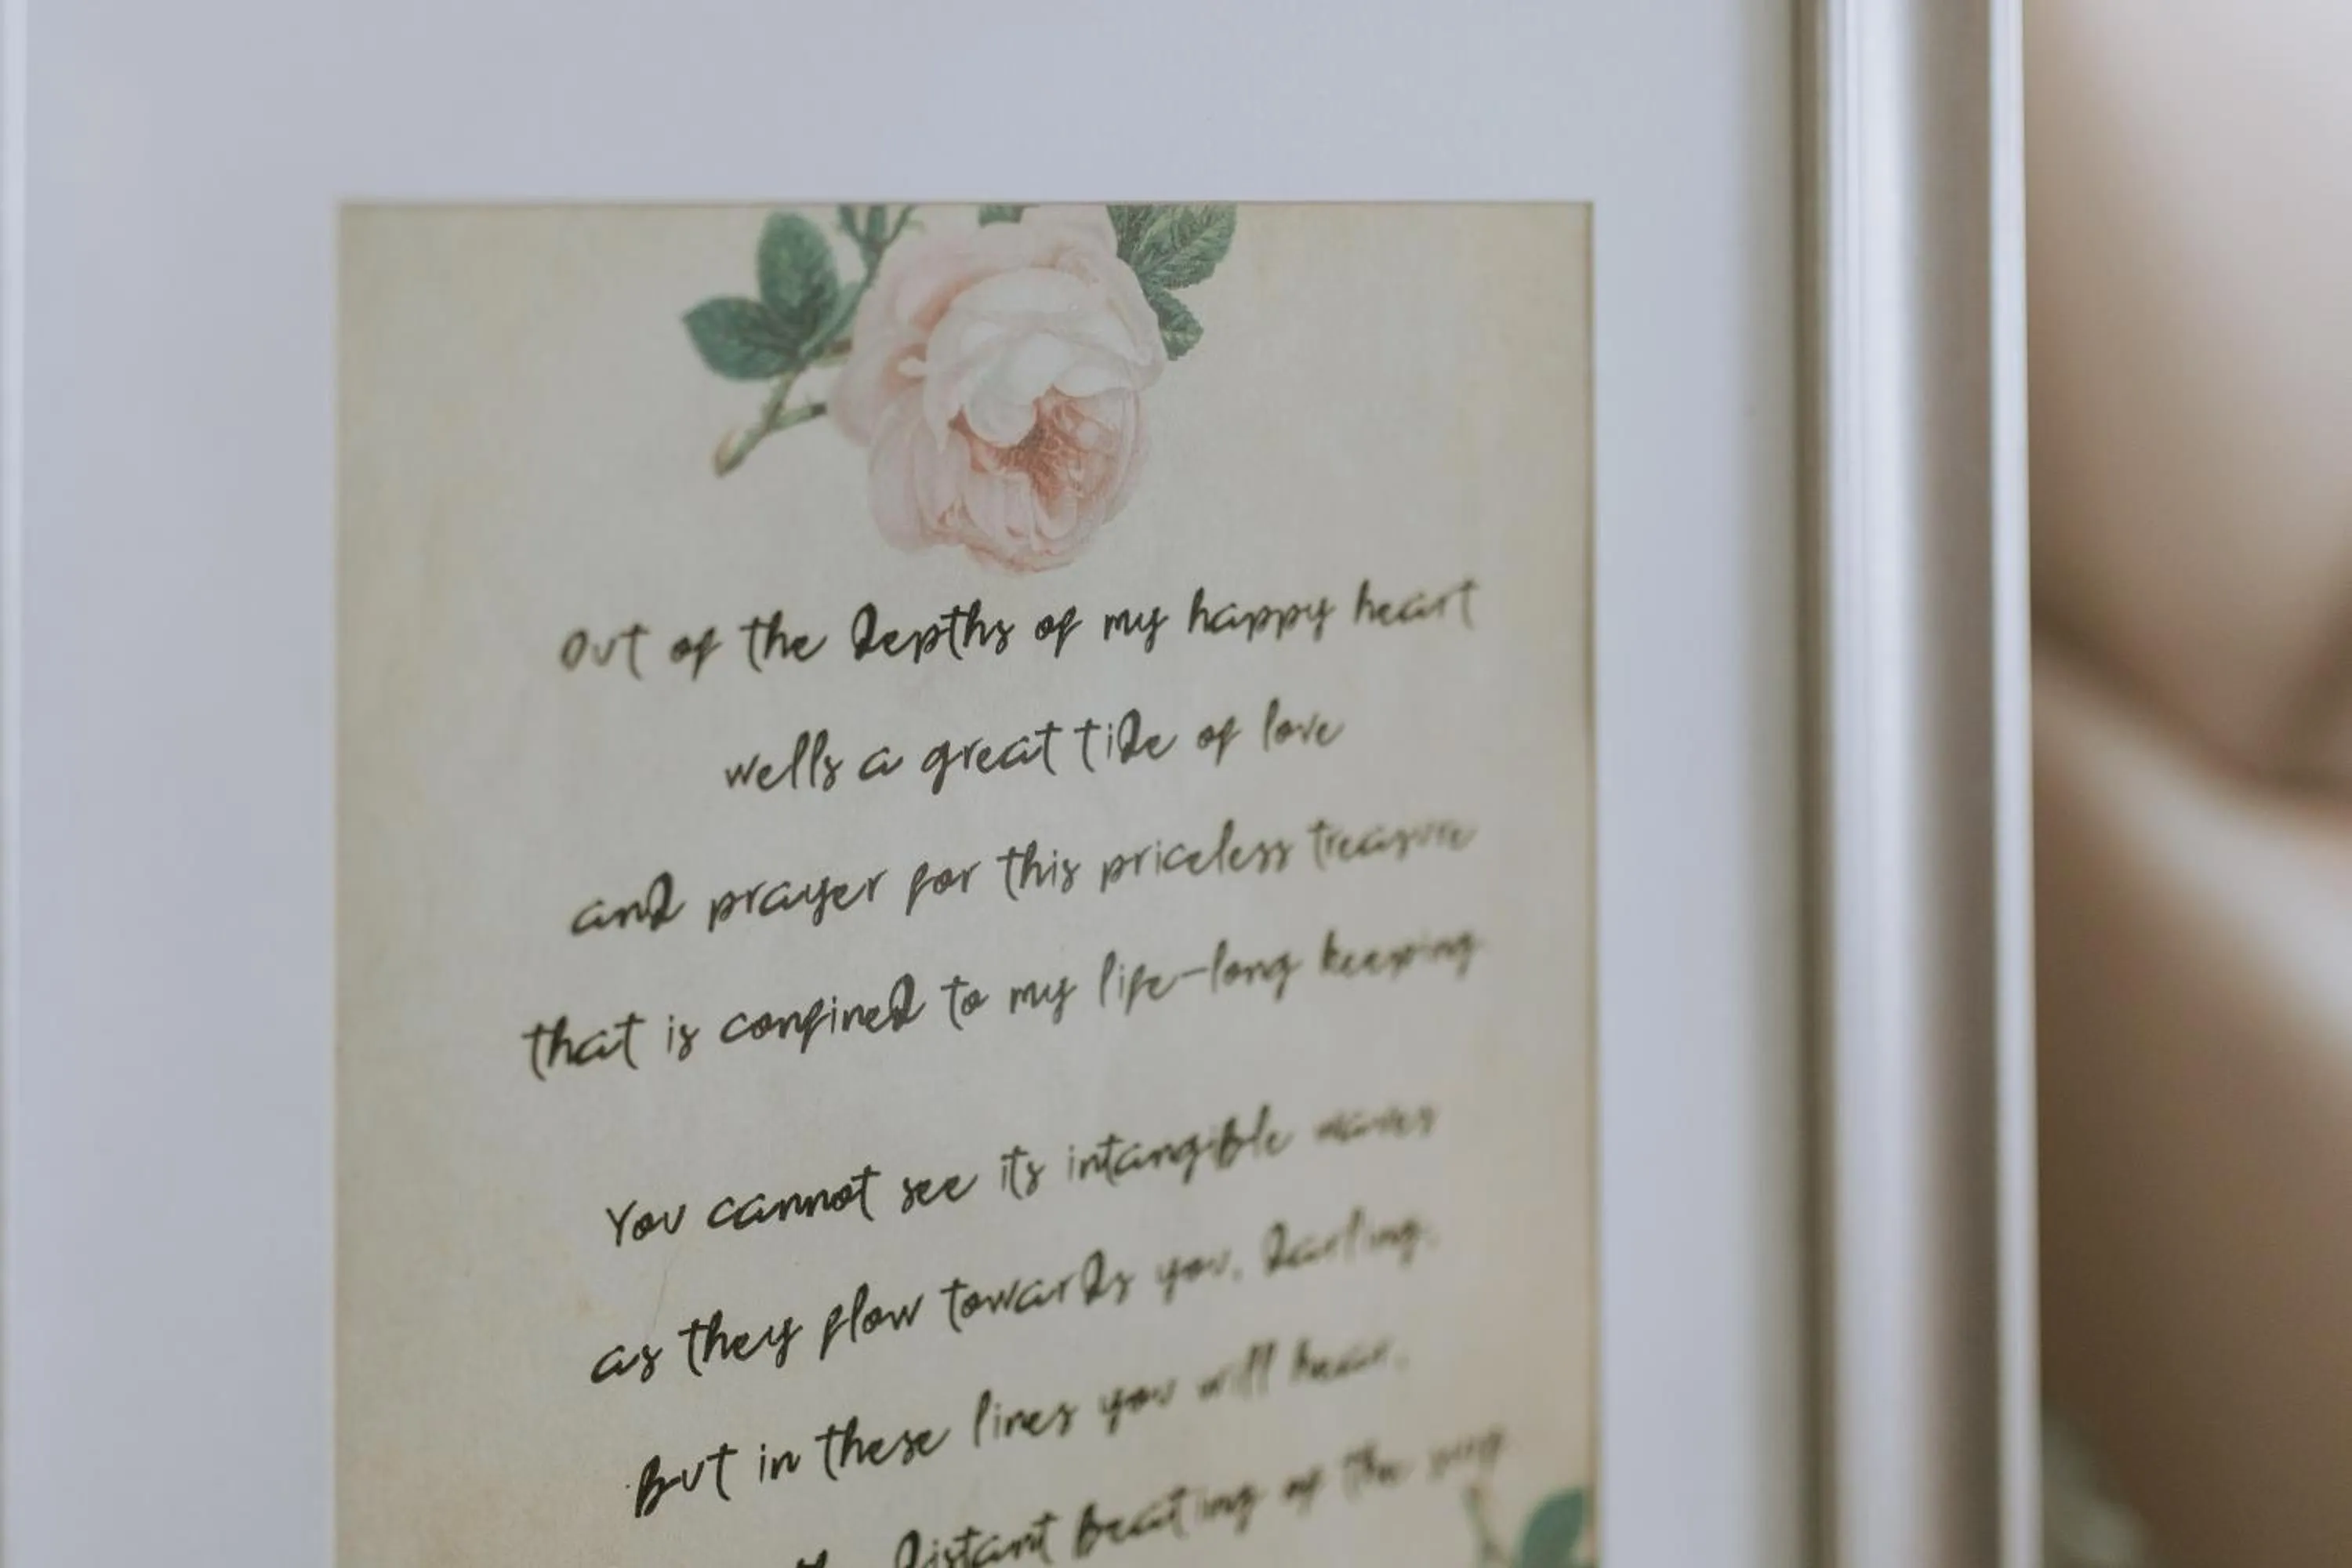 Out of the Depths of my happy heart
wells a great tide of love
and prayer for this priceless treasure
that is confined to my life-long keeping
You cannot see its intangible waves
as they flow towards you, darling,
But in these lines you will hear,
distant Beating of the